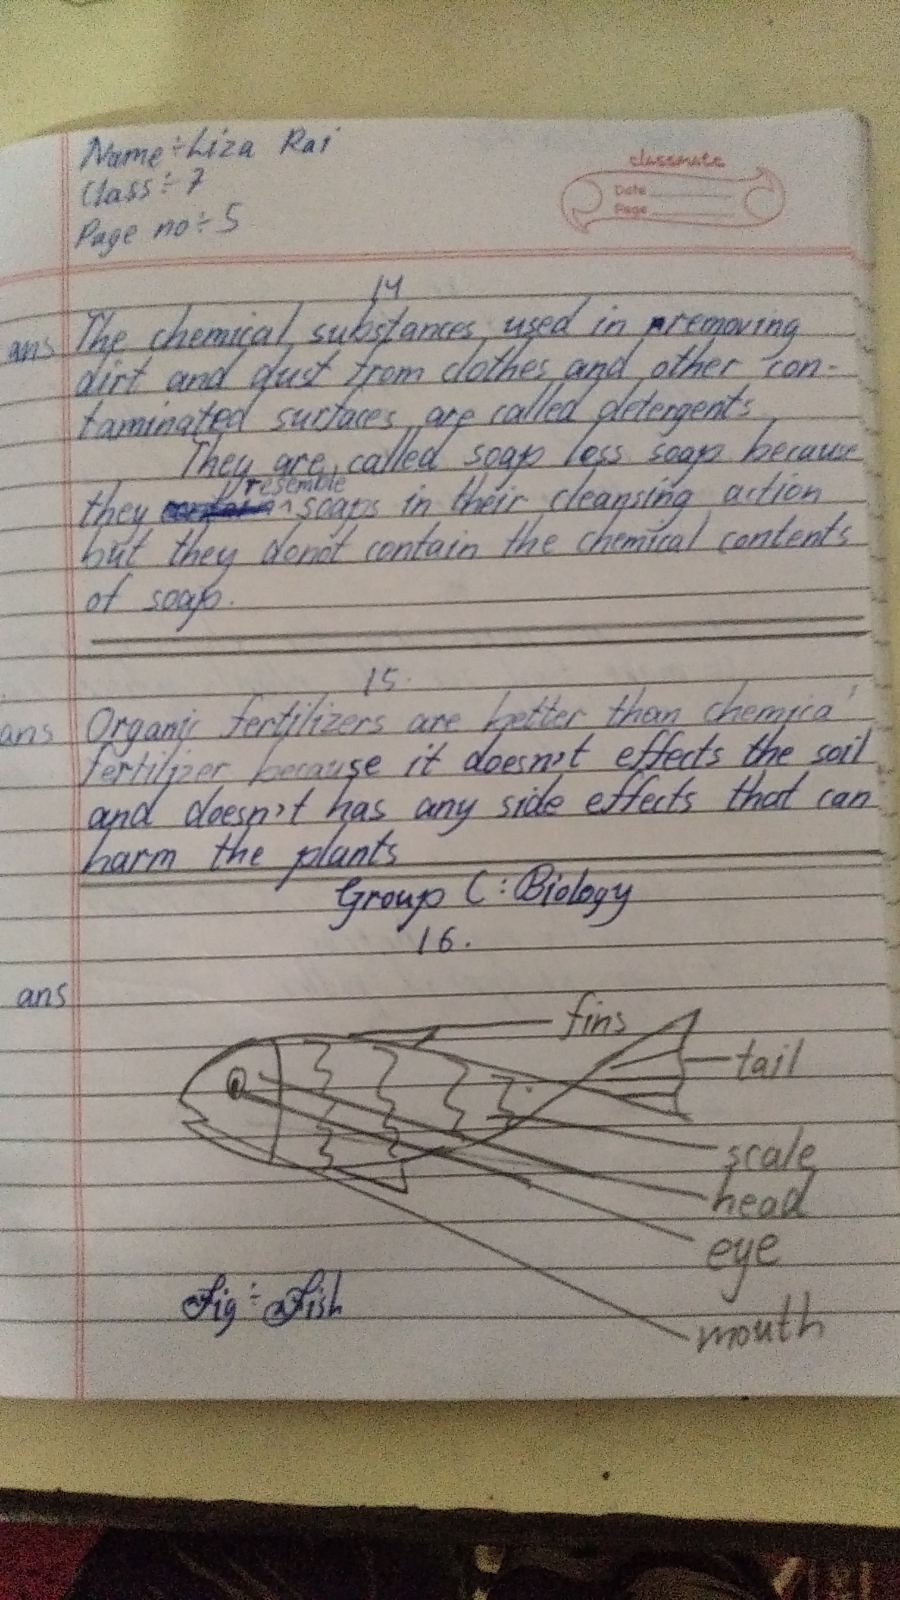 Name÷Liza Rai
Class÷7
Page no÷5
classmate
Date
Page
14
ans The chemical substances used in removing
dirt and dust from clothes and other con-
taminated surfaces are called detergents
They are called soap less soap because
they resemble soaps in their cleansing action
but they donot contain the chemical contents
of soap.
15.
ans Organic fertilizers are better than chemical
fertilizer because it doesn't effects the soil
and doesn't has any side effects that can
harm the plants
Group C: Biology
16.
ans
fins
tail
scale
head
eye
mouth
Fig÷Fish